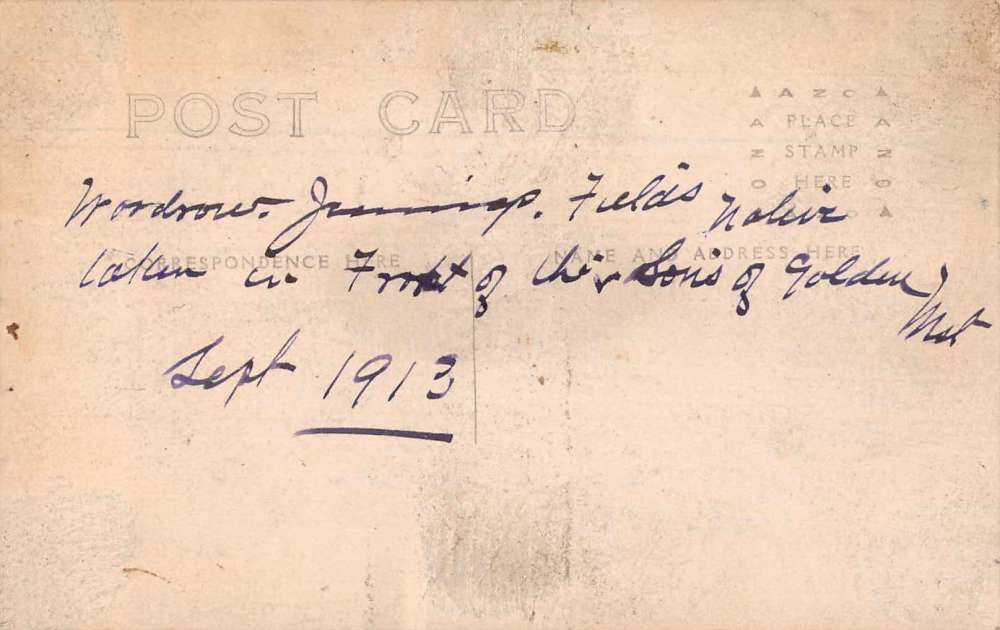 POST CARD
AZO
PLACE
STAMP
HERE
Woodrow. Jennings. Fields
CORRESPONDENCE HERE
NAME AND ADDRESS HERE
taken in Front of the Sons of Golden
Sept 1913